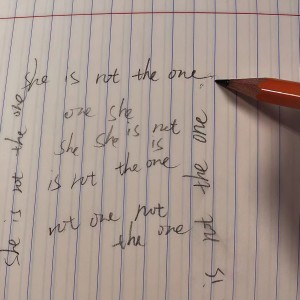 She is not the one
one she
She she is not
is
is not the one
not one not
the one
She is not the one
is not the one